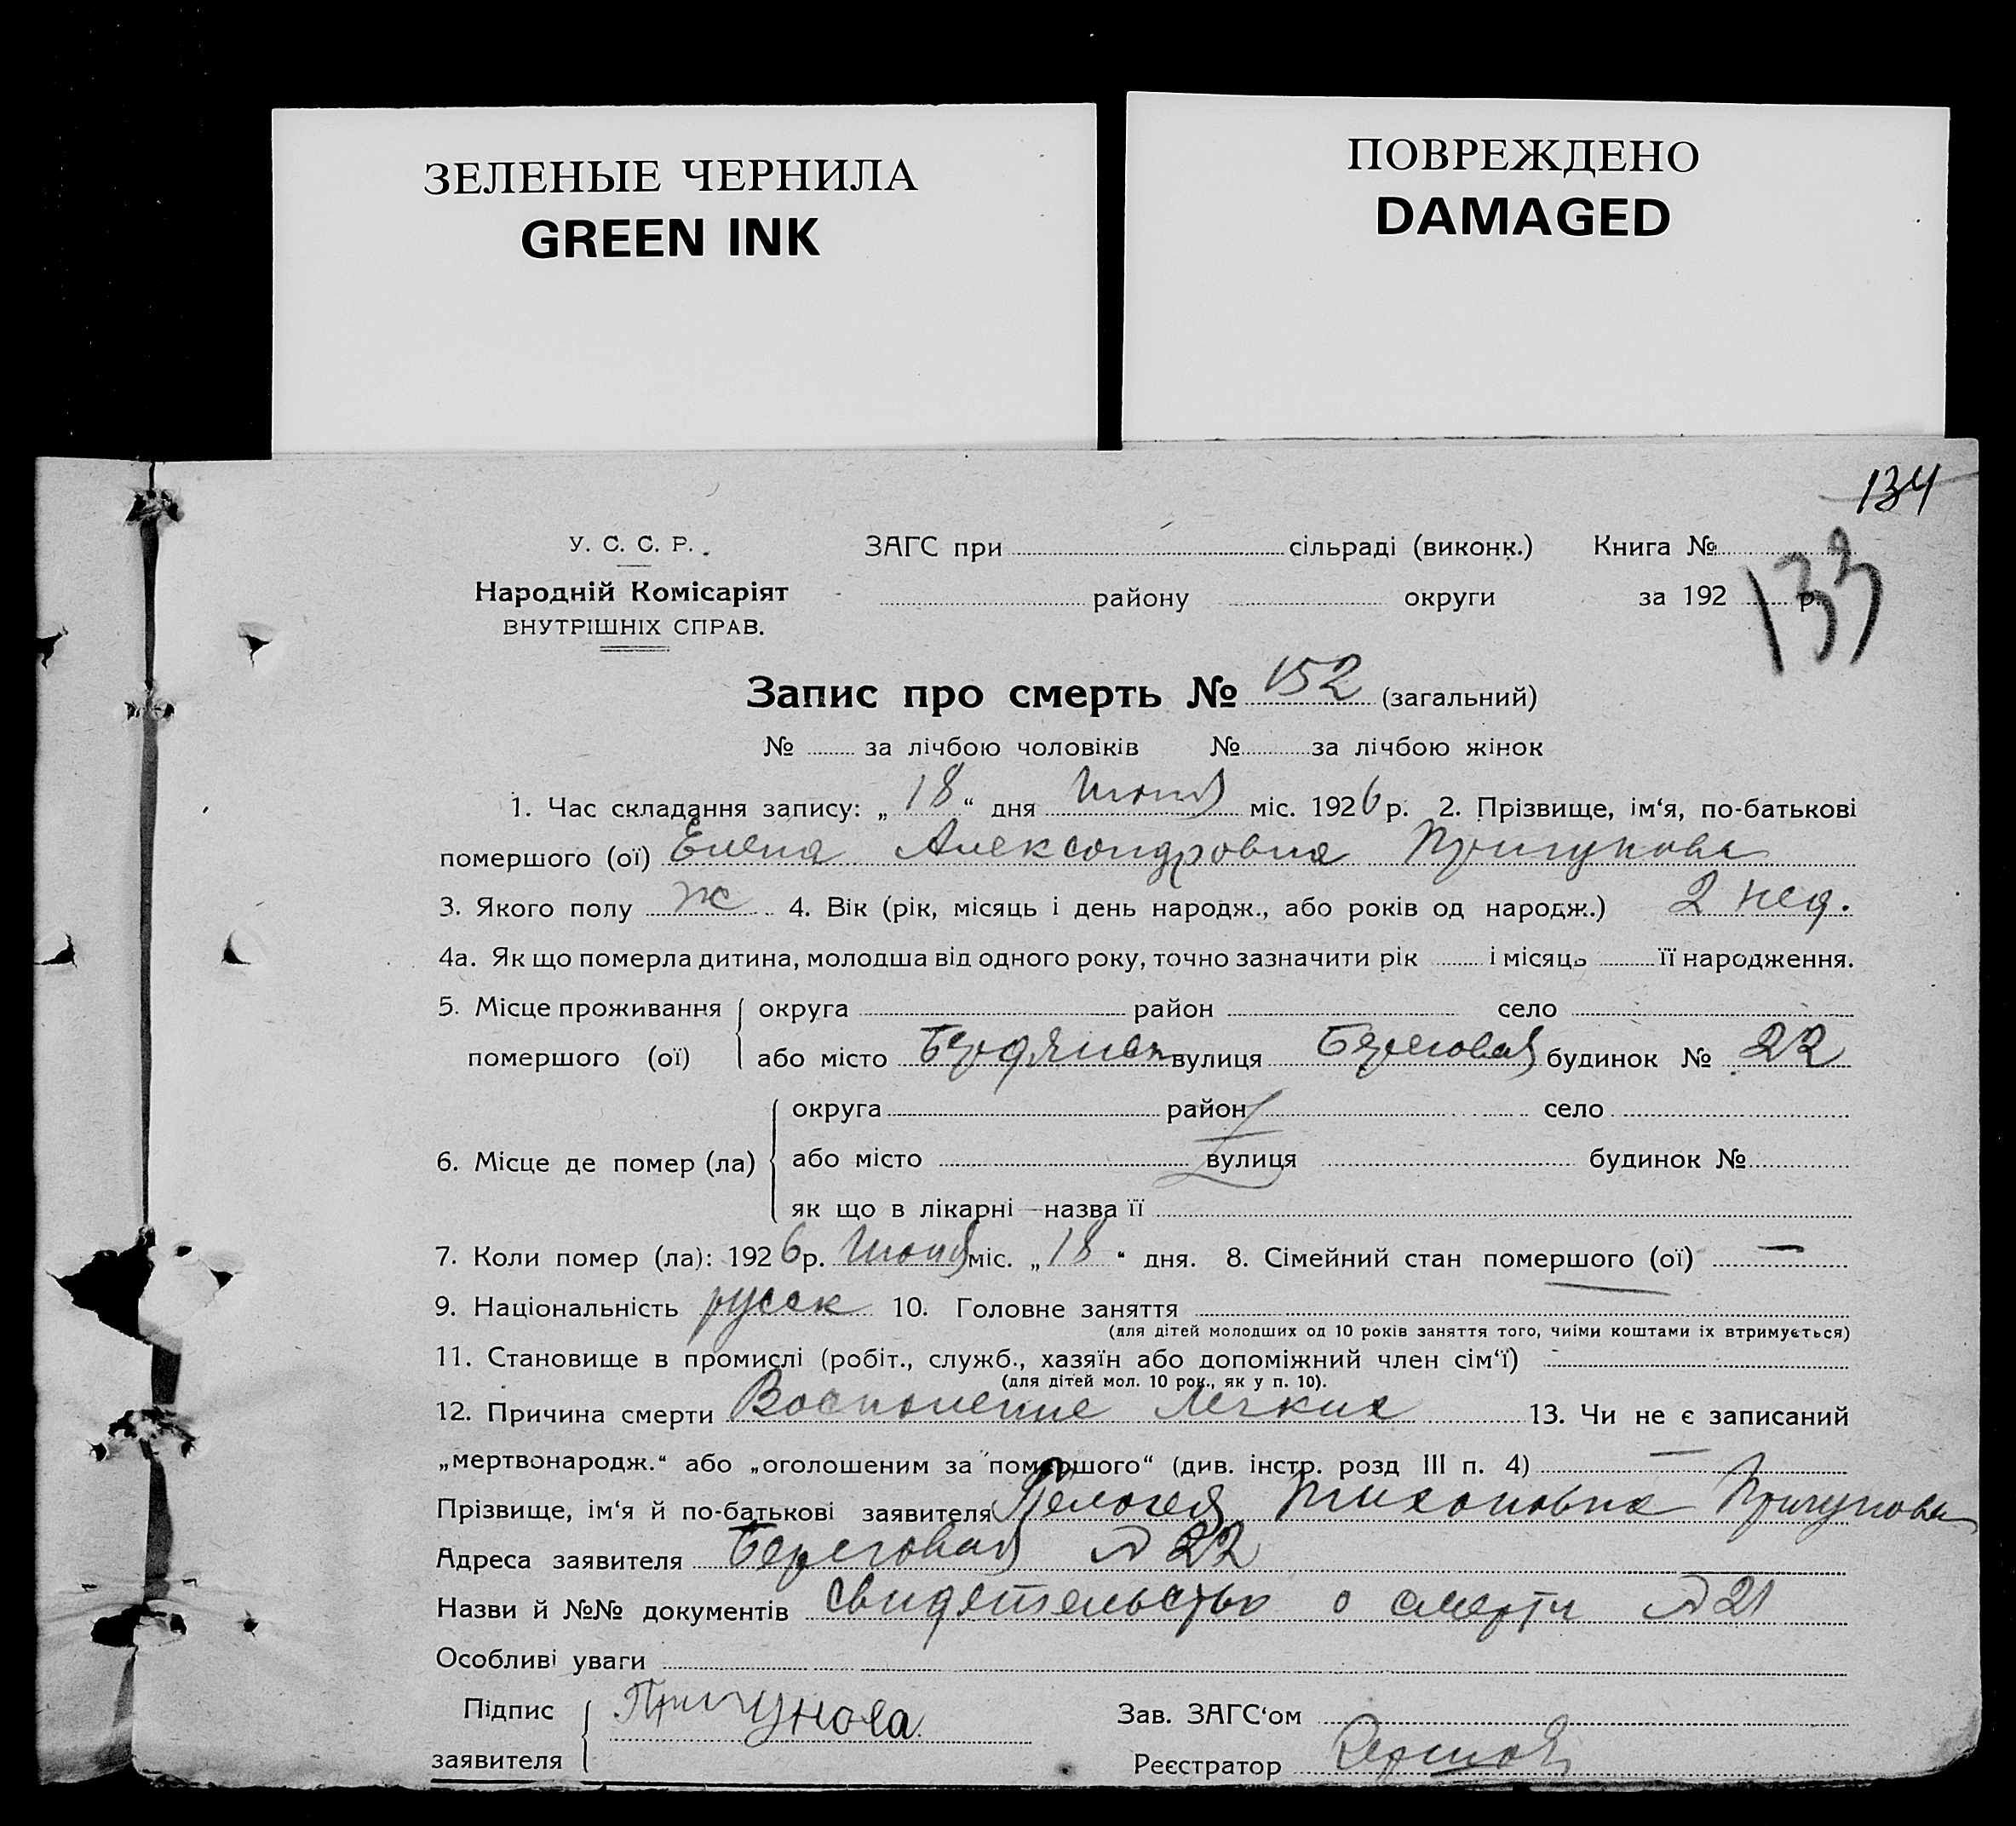 ЗЕЛЕНЫЕ ЧЕРНИЛА
GREEN INK
ПОВРЕЖДЕНО
DAMAGED
134
133
У. С. С. Р.
Народній Комісаріят
ВНУТРІШНІХ СПРАВ.
ЗАГС при сільраді (виконк.) Книга №
району округи за 192 р.
Запис про смерть № 152 (загальний)
№ за лічбою чоловіків № за лічбою жінок
1. Час складання запису: „18“ дня Июня міс. 1926 р. 2. Прізвище, ім‘я, по-батькові
помершого (ої) Елена Александровна Пригунова
3. Якого полу ж 4. Вік (рік, місяць і день народж., або років од народж.) 2 нед.
4а. Як що померла дитина, молодша від одного року, точно зазначити рік і місяць її народження.
5. Місце проживання округа район село
помершого (ої) або місто Бердянск вулиця Береговая будинок № 22
округа район село
6. Місце де помер (ла) або місто вулиця будинок №
як що в лікарні — назва її
7. Коли помер (ла): 1926 р. Июня міс. „18“ дня. 8. Сімейний стан помершого (ої) —
9. Національність русск 10. Головне заняття
(для дітей молодших од 10 років заняття того, чиїми коштами їх втримується)
11. Становище в промислі (робіт., служб., хазяїн або допоміжний член сім‘ї)
(для дітей мол. 10 рок., як у п. 10).
12. Причина смерти Восполение легких 13. Чи не є записаний
„мертвонародж.“ або „оголошеним за помершого“ (див. інстр. розд III п. 4) —
Прізвище, ім‘я й по-батькові заявителя Пелогея Тихоновна Пригунова
Адреса заявителя Береговая № 22
Назви й №№ документів свидетельство о смерти № 21
Особливі уваги
Підпис Пригунова Зав. ЗАГС‘ом
заявителя Реєстратор